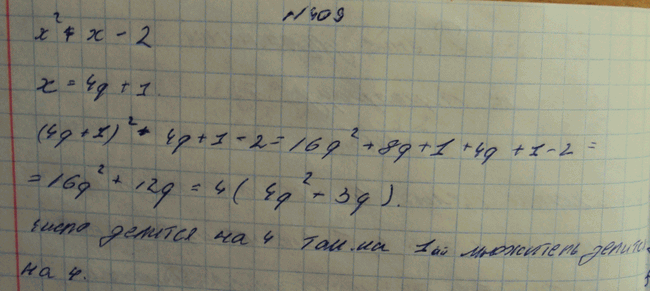 N409
x² + x - 2
x = 4q + 1.
(4q+1)² + 4q+1-2 = 16q² + 8q + 1 + 4q + 1 - 2 =
= 16q² + 12q = 4( 4q² + 3q ).
число делится на 4 1ый множитель
на 4.